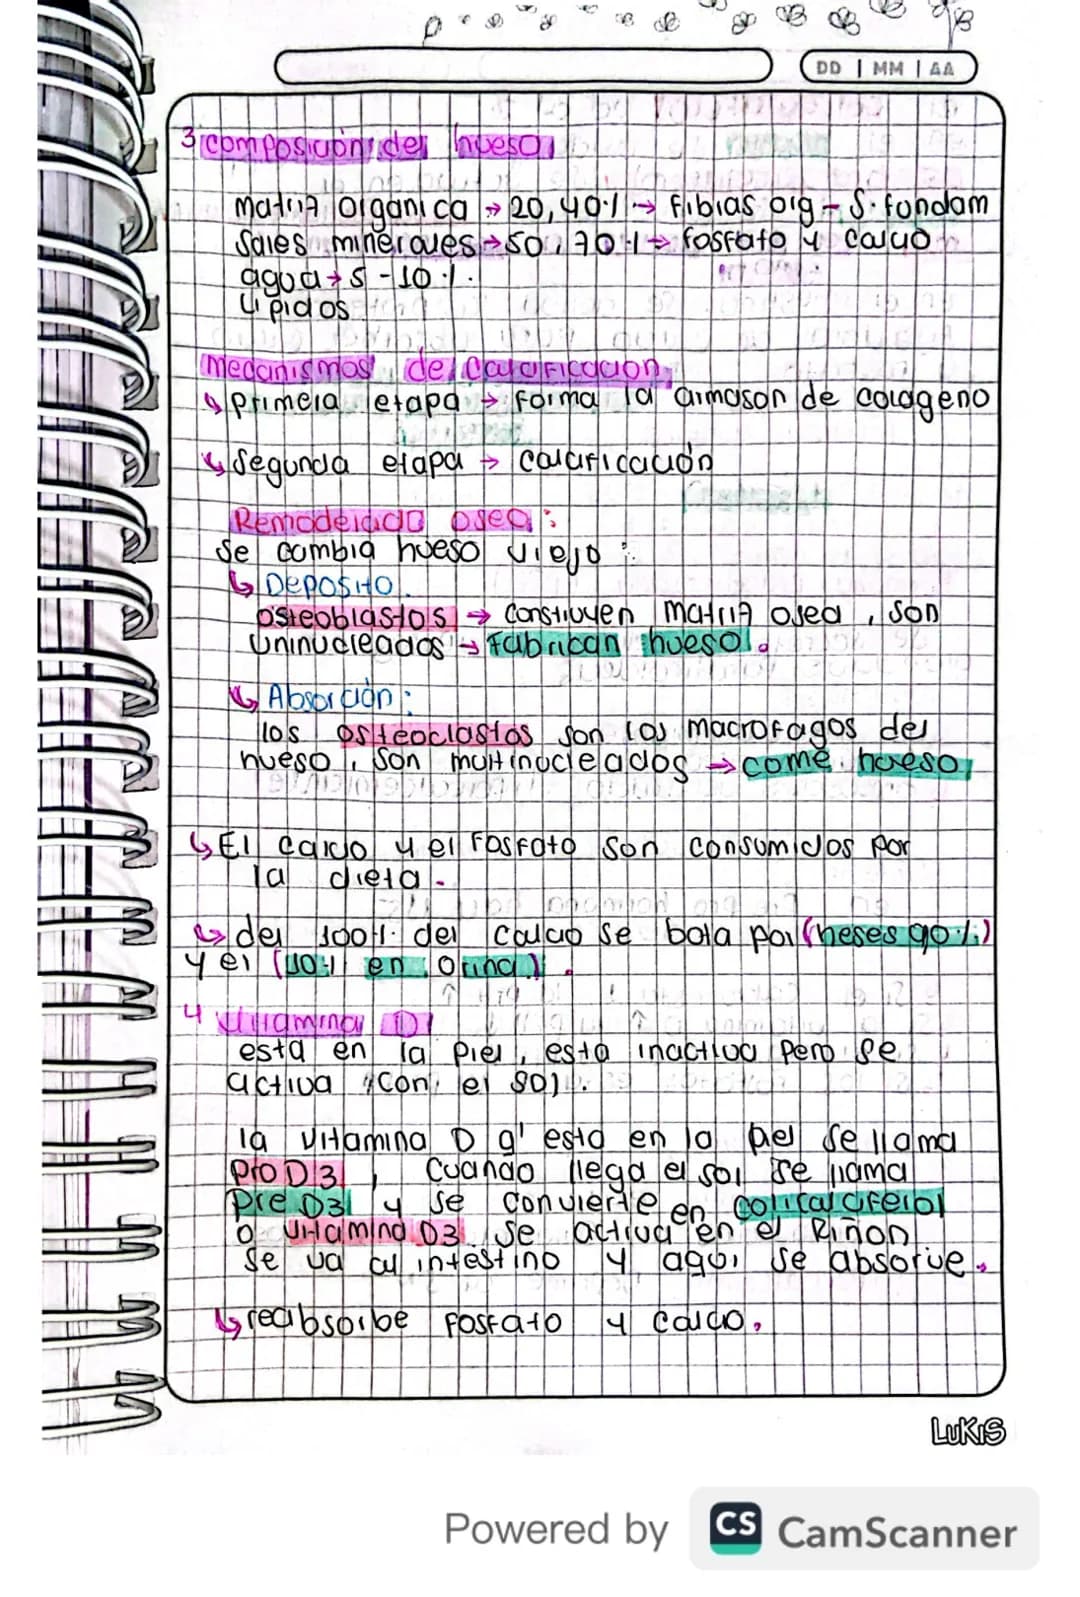 DD | MM | AA
3 composición del hueso
matriz organica → 20,40% → fibras org - S. fundam
Sales minerales → 50,70% → fosfato y calcio
agua → 5 - 10 %.
lipidos
Mecanismos de calcificacion
↳ primera etapa → forma la armason de colageno
↳ Segunda etapa → calcificación
Remodelado osea :
se cambia hueso viejo :
↳ Deposito.
osteoblastos → construyen matriz osea , son
uninucleados → Fabrican hueso.
↳ Absorción :
los osteoclastos son los macrofagos del
hueso , son multinucleados → come hueso
↳ El calcio y el fosfato son consumidos por
la dieta.
↳ del 100% del calcio se bota por (heses 90%)
y el (10% en orina).
4 Vitamina D
esta en la piel, esta inactiva pero se
activa con el sol.
la vitamina D q' esta en la piel se llama
pro D3 , Cuando llega el sol se llama
pre D3 y se convierte en
o vitamina D3 se activa en el Riñon
se va al intestino y aqui se absorve.
↳ reabsorbe fosfato y calcio.
LUKIS
Powered by CS CamScanner